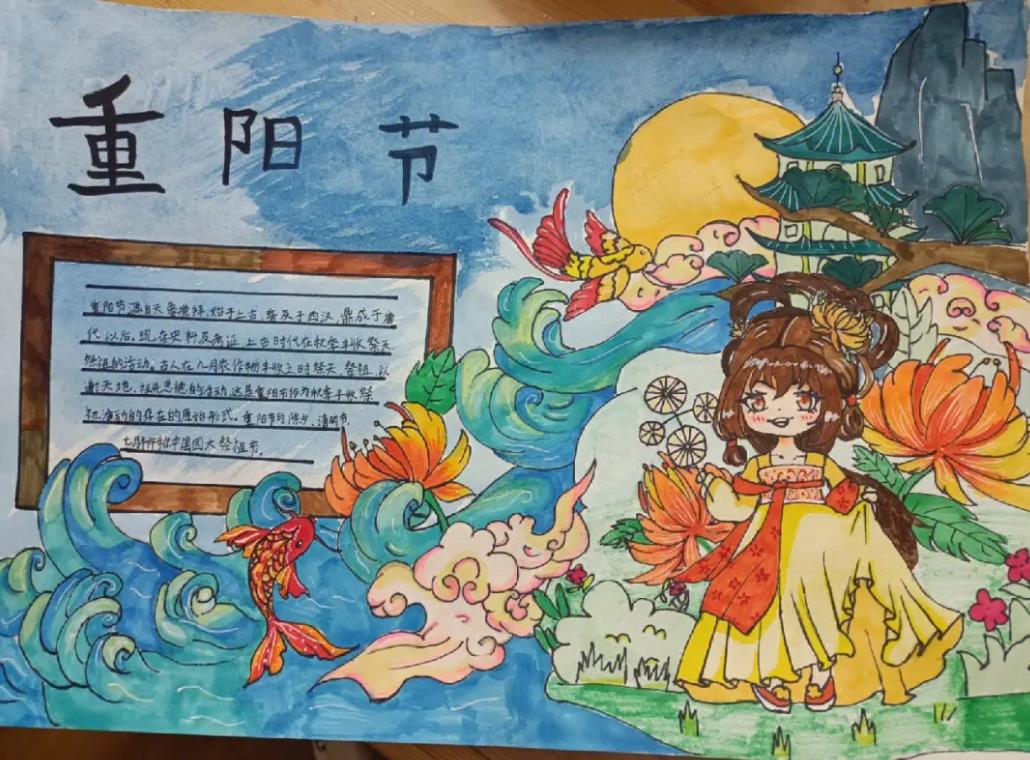 重阳节
重阳节源自天象崇拜,始于上古,普及于西汉,鼎盛于唐
代以后。现存史料及考证,上古时代在秋季丰收祭天
祭祖的活动。古人在九月农作物丰收之时祭天、祭祖,以
谢天地、祖先恩德的活动,这是重阳节作为秋季丰收祭
祀活动的存在的原始形式。重阳节与除夕、清明节、
七月中国四大祭祖节。